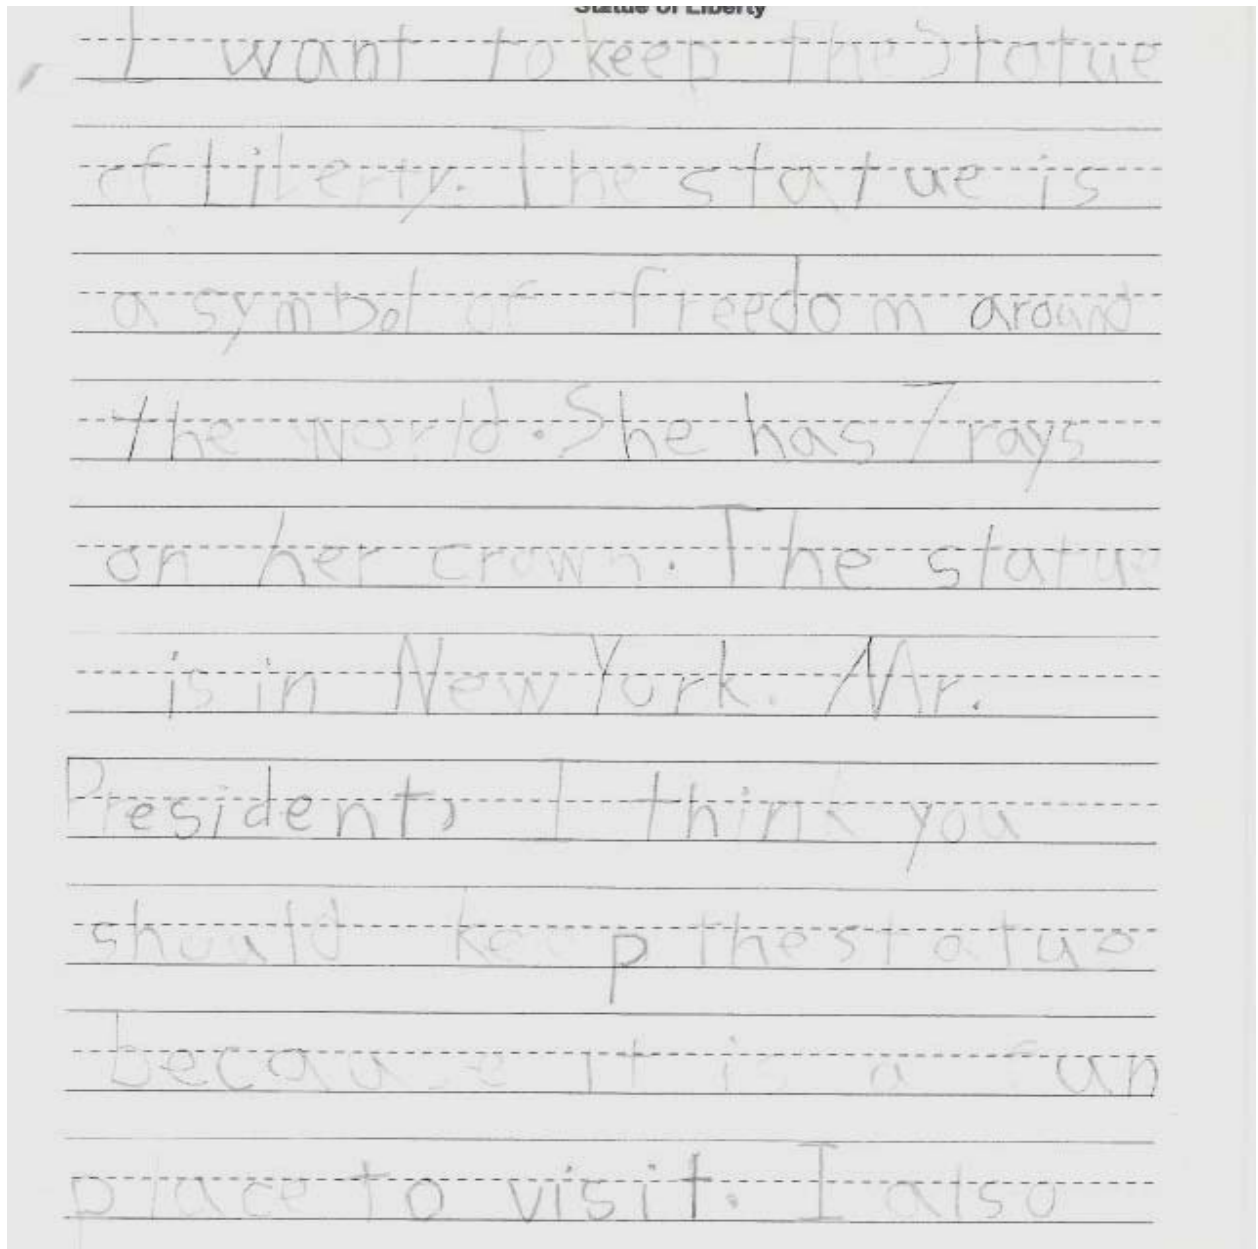 Statue of Liberty
I want to keep the Statue
of Liberty. The statue is
a symbol of freedom around
the world. She has 7 rays
on her crown. The statue
is in New York. Mr.
President, I think you
should keep the statue
because it is a fun
place to visit. I also